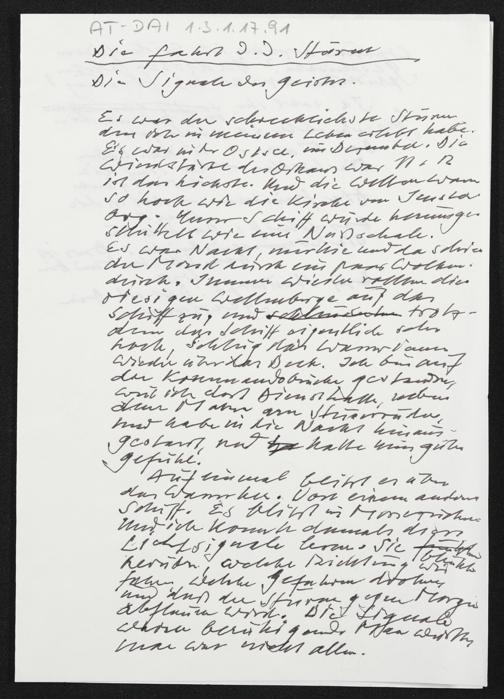 AT-DAI 1.3.1.17.91
Die Fahrt d. d. Sturm
Die Signale des Geistes.
Es war der schrecklichste Sturm
den ich in meinem Leben erlebt habe.
Es war in der Ostsee, im Dezember. Die
Windstärke des Orkans war 11. 12
ist das höchste. Und die Wellen waren
so hoch wie die Kirche von
Unser Schiff wurde herumge-
schüttelt wie eine Nußschale.
Es war Nacht, und da schien
der Mond durch ein paar Wolken
durch. Immer wieder rollten die
riesigen Wellenberge auf das
Schiff zu, und trotz-
dem das Schiff eigentlich sehr
hoch, schlug das Wasser dann
wieder über das Deck. Ich bin auf
der Kommandobrücke gestanden,
weil ich dort Dienst hatte, neben
dem Mann am Steuerruder,
und habe in die Nacht hinaus-
gestarrt, und hatte kein gutes
Gefühl.
Auf einmal blitzt es über
das Wasser her. Von einem anderen
Schiff. Es blitzt in Morsezeichen
Und ich konnte damals diese
Lichtsignale lesen. Sie blinkten
herüber, welche Richtung wir
fahren, welche Gefahren drohen
und daß der Sturm gegen Morgen
abflauen würde. Die Signale
waren beruhigend. Man wußte,
man war nicht allein.